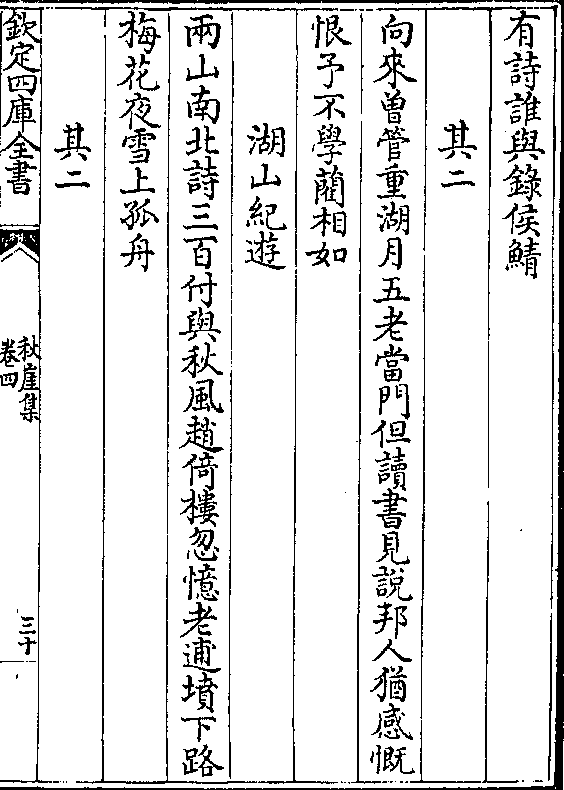 有詩誰與錄侯鯖
其二
向來曽管重湖月五老當門但讀書見說邦人猶感慨
恨予不學藺相如
湖山紀遊
兩山南北詩三百付與秋風趙倚樓忽憶老逋墳下路
梅花夜雪上孤舟
其二
欽定四庫全書
秋崖集
卷四
三十